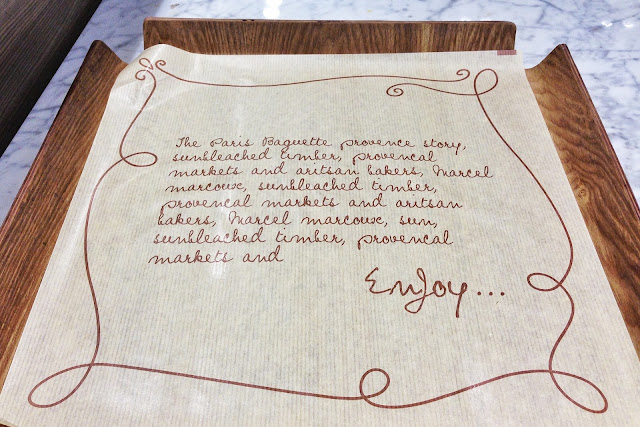 The Paris Baguette provence story,
sunbleached timber, provencal
markets and aritsan bakers, Marcel
marcoux, sunbleached timber,
provencal markets and aritsan
bakers, Marcel marcoux, sun,
sunbleached timber, provencal
markets and
Enjoy...